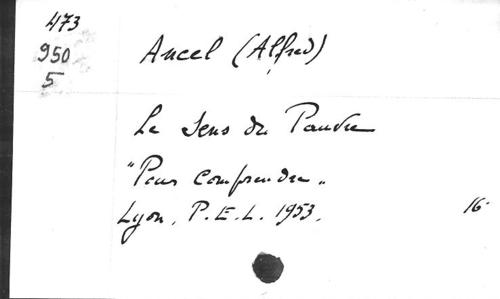 473
950
5
Ancel (Alfred)
Le Sens du Pauvre
"Pour comprendre"
Lyon, P.E.L. 1953.
16°